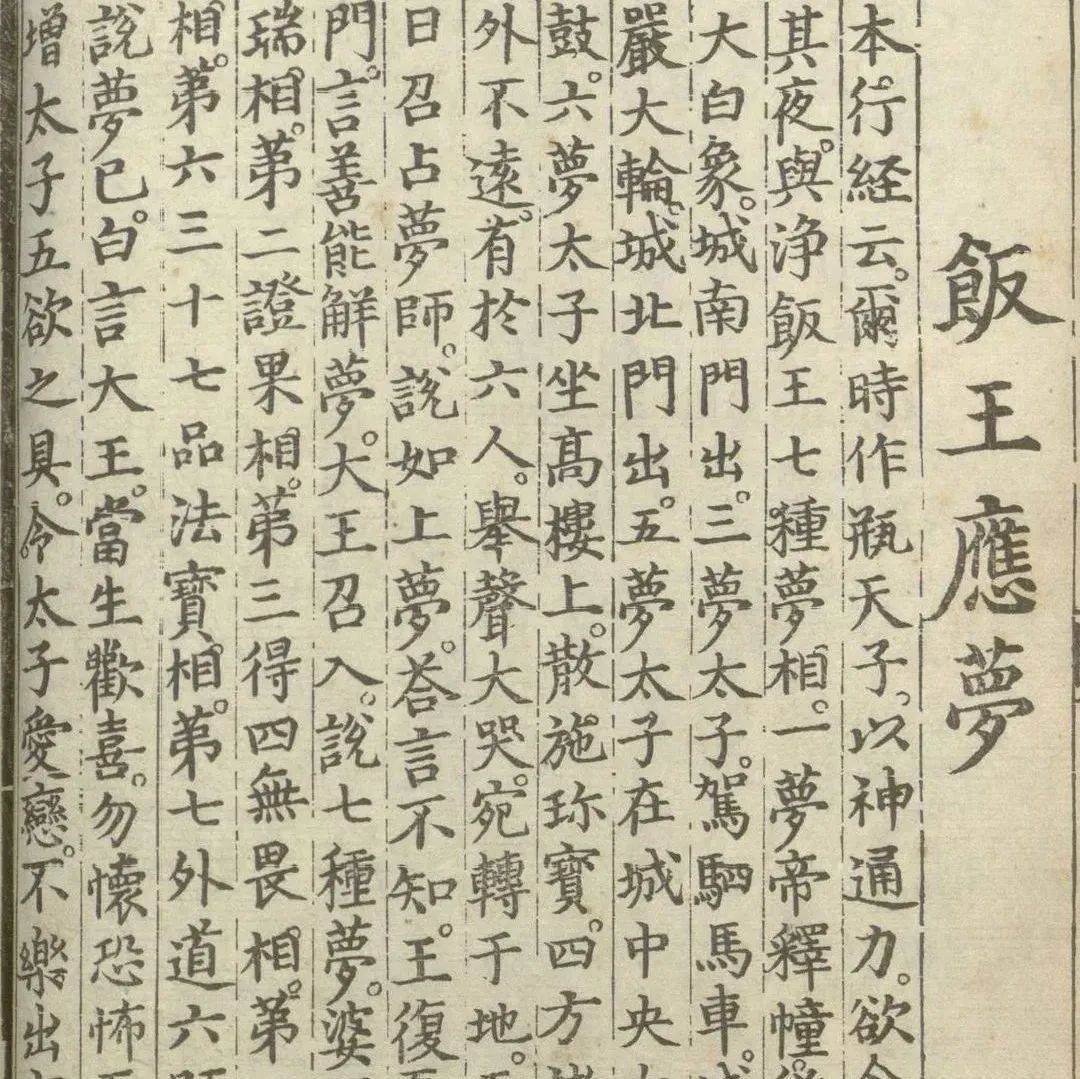 飯王應夢
本行経云。爾時作瓶天子。以神通力。欲
其夜。與浄飯王七種夢相。一夢帝釋幢。
大白象。城南門出。三夢太子。駕駟馬車。
嚴大輪。城北門出。五夢太子在城中央
鼓。六夢太子坐髙樓上。散施珎寶。四方
外不遠。有於六人。舉聲大哭。宛轉于地。
日召占夢師。說如上夢。荅言不知。王復
門。言善能解夢。大王召入。說七種夢。婆
瑞相。苐二證果相。苐三得四無畏相。苐
相。苐六三十七品法寶相。苐七外道六
說夢已。白言大王。當生歡喜。勿懐恐怖
增太子五欲之具。令太子愛戀。不樂出